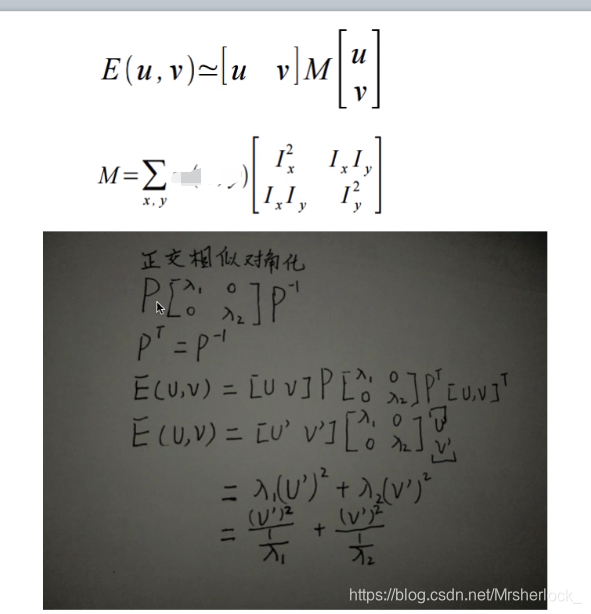 E(u,v)≃[u v]M[u v]
M=∑x,y )[I_x^2 I_xI_y I_xI_y I_y^2]
正交相似对角化
P[λ1 0 0 λ2]P^-1
P^T = P^-1
E(U,V) = [U V]P[λ1 0 0 λ2]P^T[U,V]^T
E(U,V) = [U' V'][λ1 0 0 λ2][U' V']
= λ1(U')^2 + λ2(V')^2
= (U')^2/(1/λ1) + (V')^2/(1/λ2)
https://blog.csdn.net/Mrsherlock_